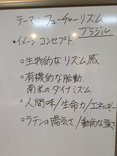 テーマ フューチャーリズム
ブラジル
●イメージ コンセプト
●生物的なリズム感
●有機的な胎動
南米のダイナミズム
●人間味/生命力/エネルギー
●ラテンの陽気さ/動的な